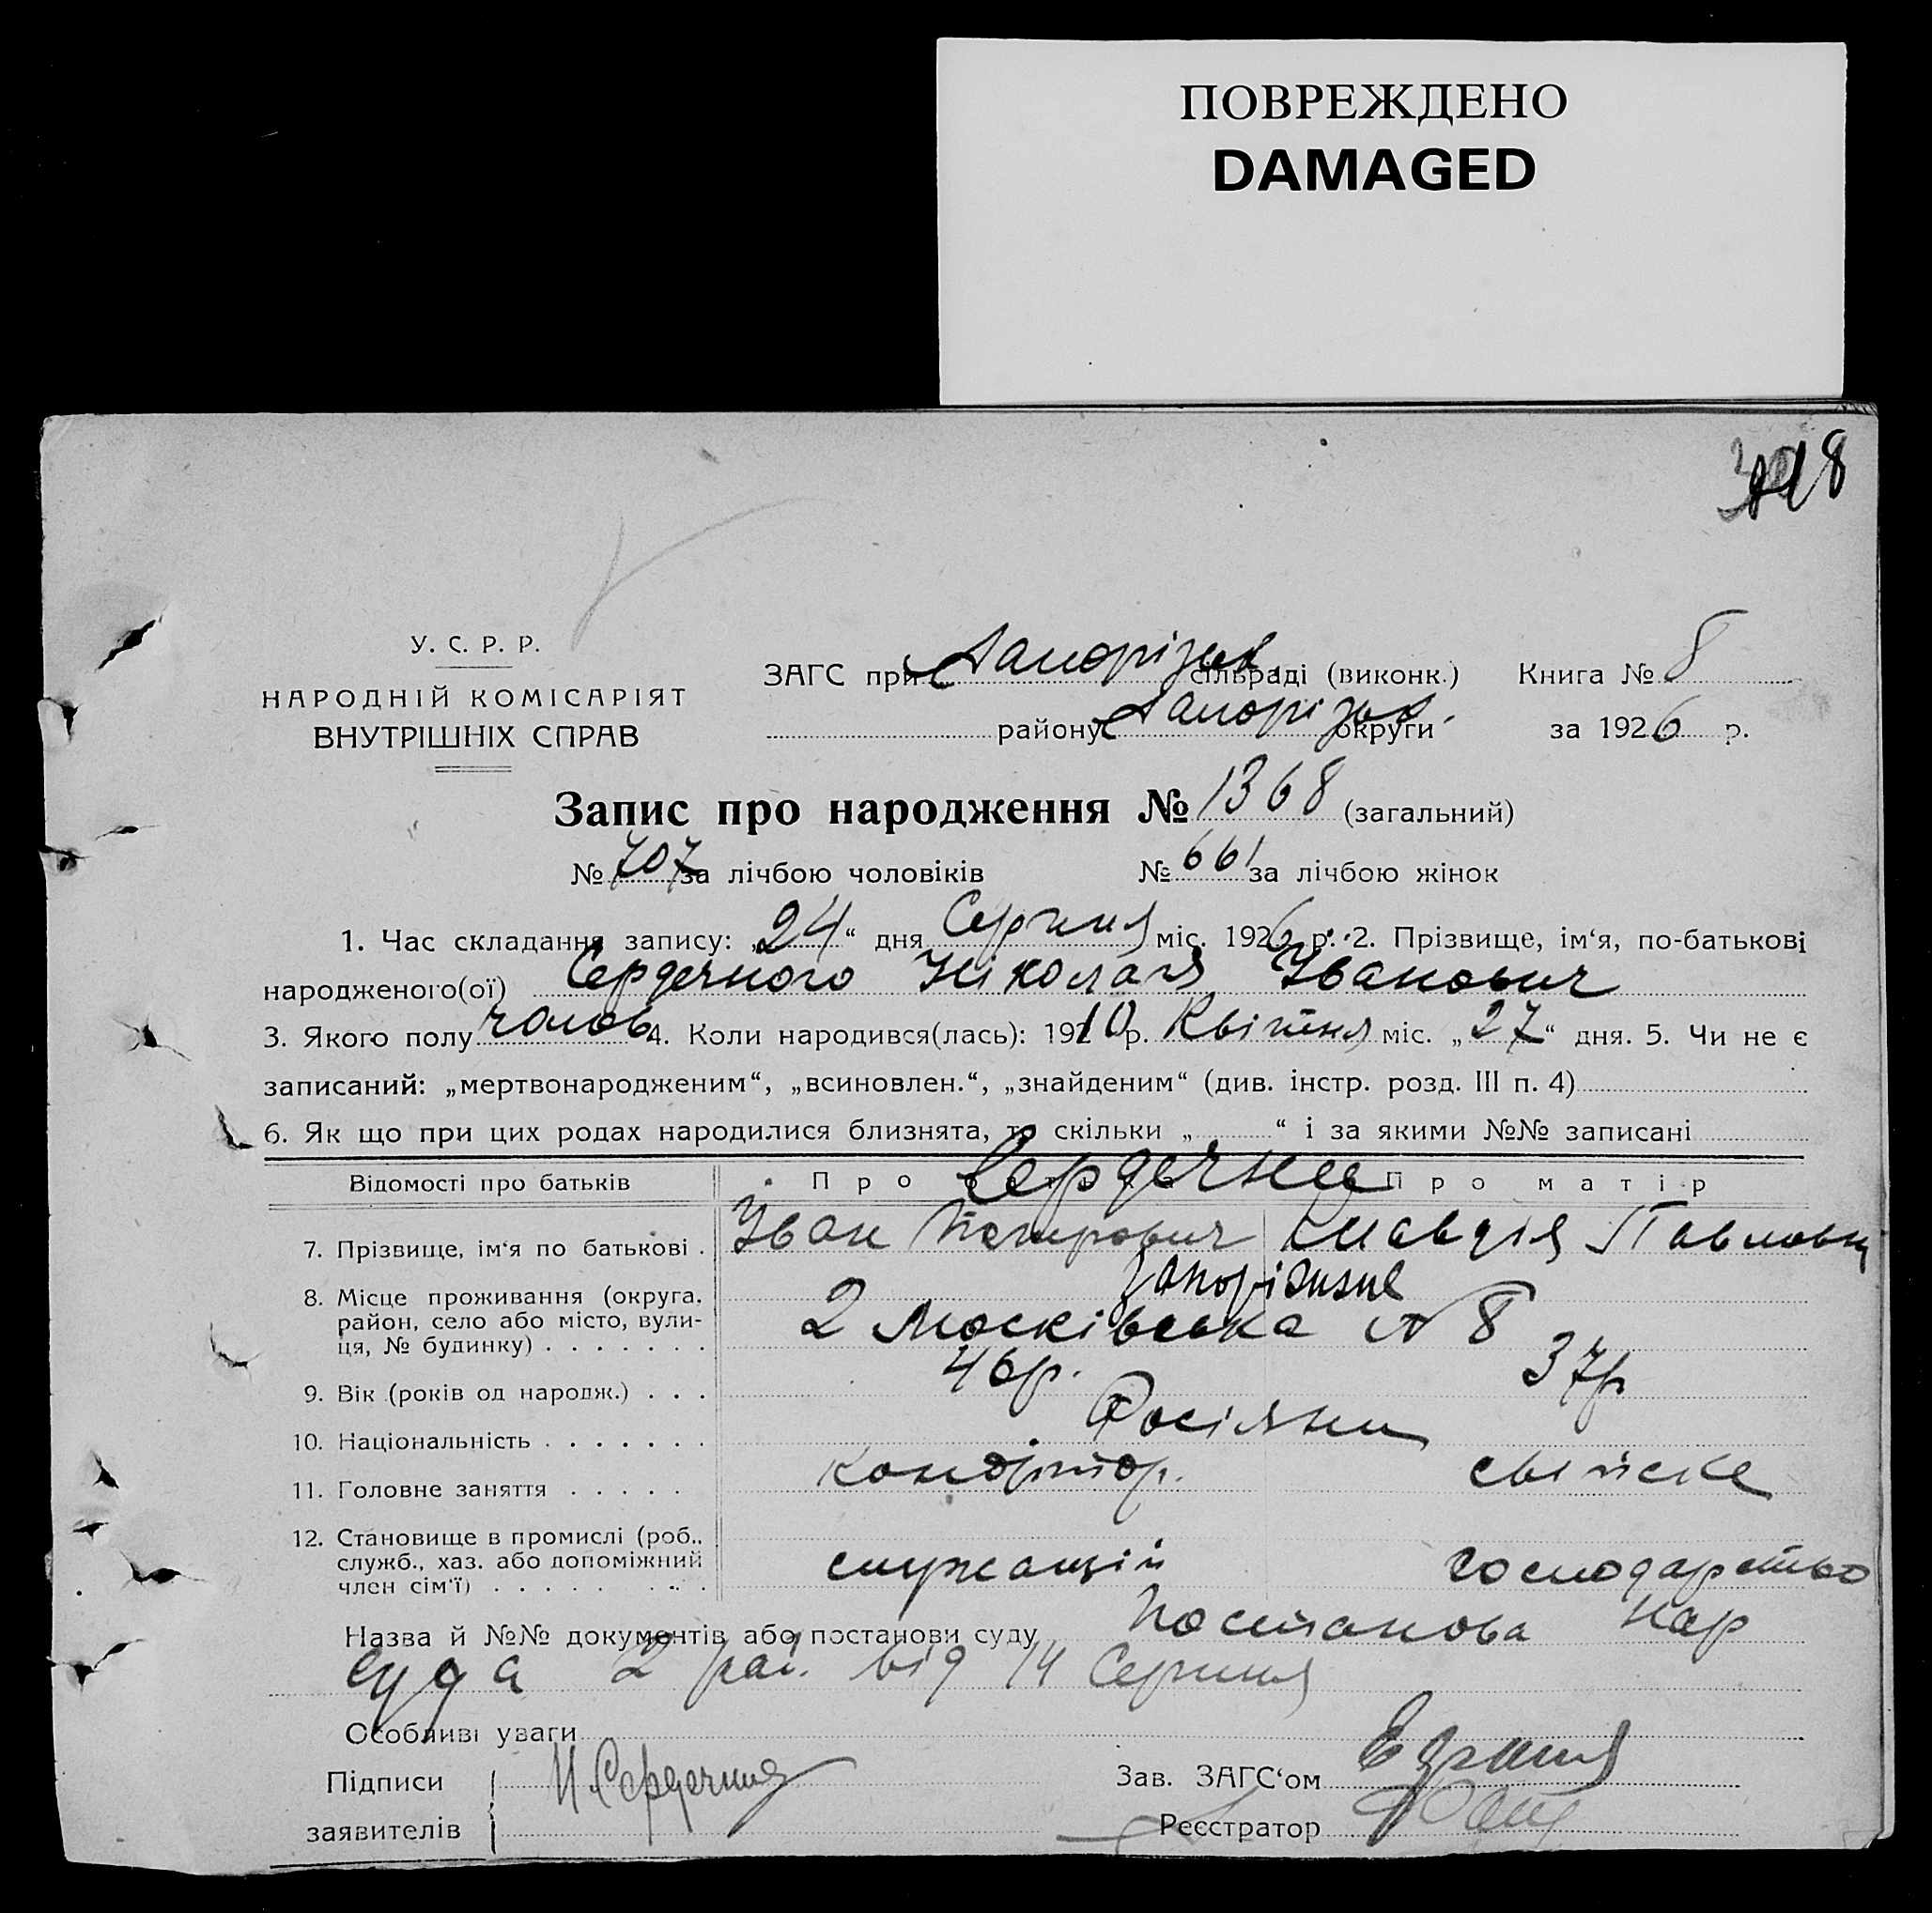 ПОВРЕЖДЕНО
DAMAGED
У. С. Р. Р.
НАРОДНІЙ КОМІСАРІЯТ
ВНУТРІШНІХ СПРАВ
ЗАГС при Запорізьк. сільраді (виконк.) Книга № 8
району Запорізьк. округи за 1926 р.
Запис про народження № 1368 (загальний)
№ 707 за лічбою чоловіків № 661 за лічбою жінок
1. Час складання запису: „24“ дня Серпня міс. 1926 р. 2. Прізвище, ім‘я, по-батькові
народженого(ої) Сердечного Ніколая Іванович
3. Якого полу чолов 4. Коли народився(лась): 1910 р. Квітня міс. „27“ дня. 5. Чи не є
записаний: „мертвонародженим“, „всиновлен.“, „знайденим“ (див. інстр. розд. III п. 4)
6. Як що при цих родах народилися близнята, то скільки „ “ і за якими №№ записані
Відомості про батьків Про Сердечные Про матір
7. Прізвище, ім‘я по батькові . Іван Петрович Клавдія Павловн
8. Місце проживання (округа, Запоріжжє
район, село або місто, вули-
ця, № будинку) . . . . . . . 2 Московська № 8
9. Вік (років од народж.) . . . 46р. 37р
10. Національність . . . . . . . Росіяни
11. Головне заняття . . . . . кондітор. свійске
12. Становище в промислі (роб.,
служб., хаз. або допоміжний
член сім‘ї) служащій господарство
Назва й №№ документів або постанови суду Постанова Нар
суда 2 рай. від 14 Серпня
Особливі уваги
Підписи И. Сердечная Зав. ЗАГС‘ом
заявителів Реєстратор